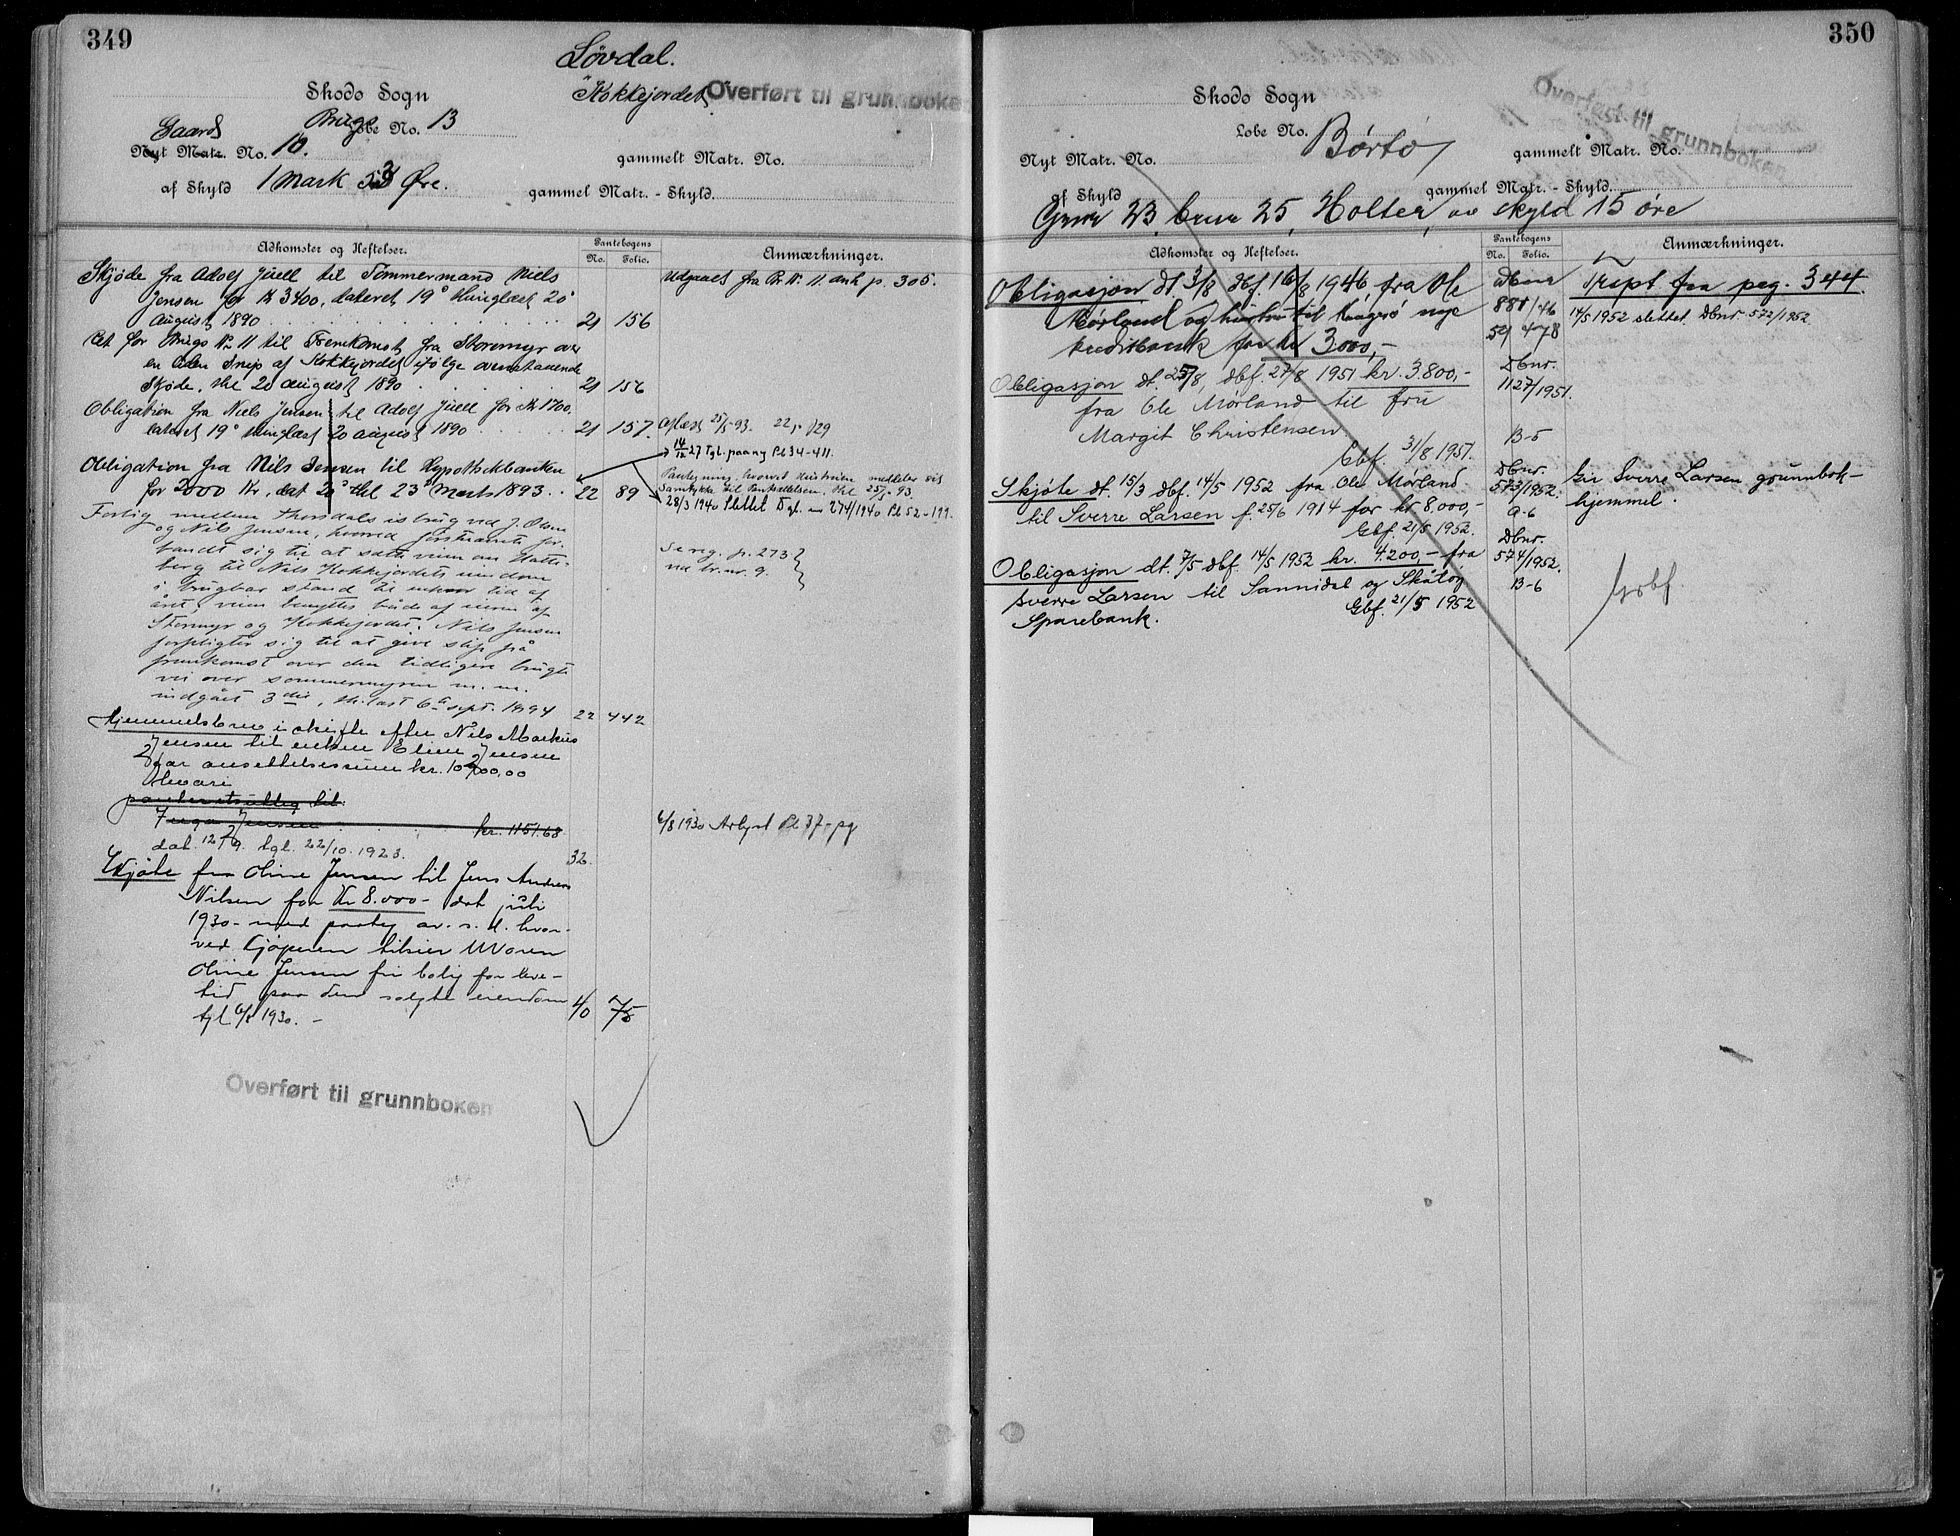 349
Løvdal.
Skodo Sogn
Kokkejordet
Overført til grunnboken
Gaards Brugs Løbe No. 13
Nyt Matr. No. 10.
gammelt Matr. No.
af Skyld 1 Mark 53 Øre.
gammel Matr.-Skyld.
Adkomster og Heftelser.
Pantebogens
No. Folio.
Anmærkninger.
Skjøde fra Adolf Juell til Tømmermand Niels
Jensen for Kr 3400, dateret 19 thinglæst 20
August 1890 21 156
Udgaaet fra Br. Nr. 11 anh p. 305.
Ret for Brugs No 11 til Fremkomst fra Stormyr over
en Snip af Kokkejordet ifølge ovenstaaende
Skjøde, thl 20 August 1890 21 156
Obligation fra Niels Jensen til Adolf Juell for Kr 1700.
dateret 19 thinglæst 20 august 1890 21 157.
Aflæst 25/5 93. 22,
14/12 27 Tgl. paany Pb 34-411.
Obligation fra Nils Jensen til Hypothekbanken
for 2000 Kr, dat 20 thl 23 Marts 1893. 22 89
28/3 1940 Slettet Dgl. nr 274/1940 Pb 52-199.
Forlig mellem Thorsdals isbrug ved J. Olsen
og Nils Jensen, hvorved førstnævnte for-
bandt sig til at sætte veien om Hatte-
berg til Nils Kokkejordets eiendom
i brugbar stand til enhver tid af
året, veien benyttes både af eieren af
Stormyr og Kokkejordet. Nils Jensen
forpligter sig til at give slip på
fremkomst over den tidligere brugte
vei over sommermyren m. m.
indgået 3die, thl. last 6 sept. 1894 22 442
Se reg. p. 273
ved br. nr. 9.
Hjemmelsbrev i skifte efter Nils Markus
Jensen til enken Eline Jensen
for ansettelsessum kr. 10700,00
Jensen kr. 1151.68
dat. 12/9. tgl. 22/10. 1923. 32.
6/8 1930 Avlyst Pb 37-pg
Skjøte fra Oline Jensen til Jens Andreas
Nilsen for Kr 8.000- dat juli
1930- med av s. d. hvor-
ved kjøperen tilsier Moren
Oline Jensen fri bolig for leve-
tid paa den solgte eiendom
tgl 6/8 1930.- 40 75
Overført til grunnboken
350
Skodo Sogn
Overført til grunnboken
Løbe No.
Børtø
Nyt Matr. No.
gammelt Matr. No.
af Skyld
gammel Matr.-Skyld.
Gnr 23, bnr 25, Holter, av skyld 15 øre
Adkomster og Heftelser.
Pantebogens
No. Folio.
Anmærkninger.
Obligasjon dt. 3/8 dbf 16/8 1946, fra Ole
Mørland og hustru til Kragerø nye
kreditbank for kr 3000,-
Dbnr
888/46
59 478
Trspt fra pag. 344.
14/5 1952 slettet Dbnr 572/1952
Obligasjon dt. 25/8, dbf. 27/8 1951 kr. 3.800,-
fra Ole Mørland til fru
Margit Christensen
Gbf. 31/8 1951.
Dbnr.
1127/1951.
B-5
Skjøte dt. 15/3 dbf. 14/5 1952 fra Ole Mørland
til Sverre Larsen f. 25/6 1914 for kr 8.000,-
Gbf. 21/5 1952.
Dbnr.
573/1952.
A-6
Gir Sverre Larsen grunnbok-
hjemmel.
Obligasjon dt. 7/5 dbf. 14/5 1952 kr. 4.200,- fra
Sverre Larsen til Sannidal og Skåtøy
Sparebank.
Gbf. 21/5 1952
Dbnr.
574/1952.
B-6